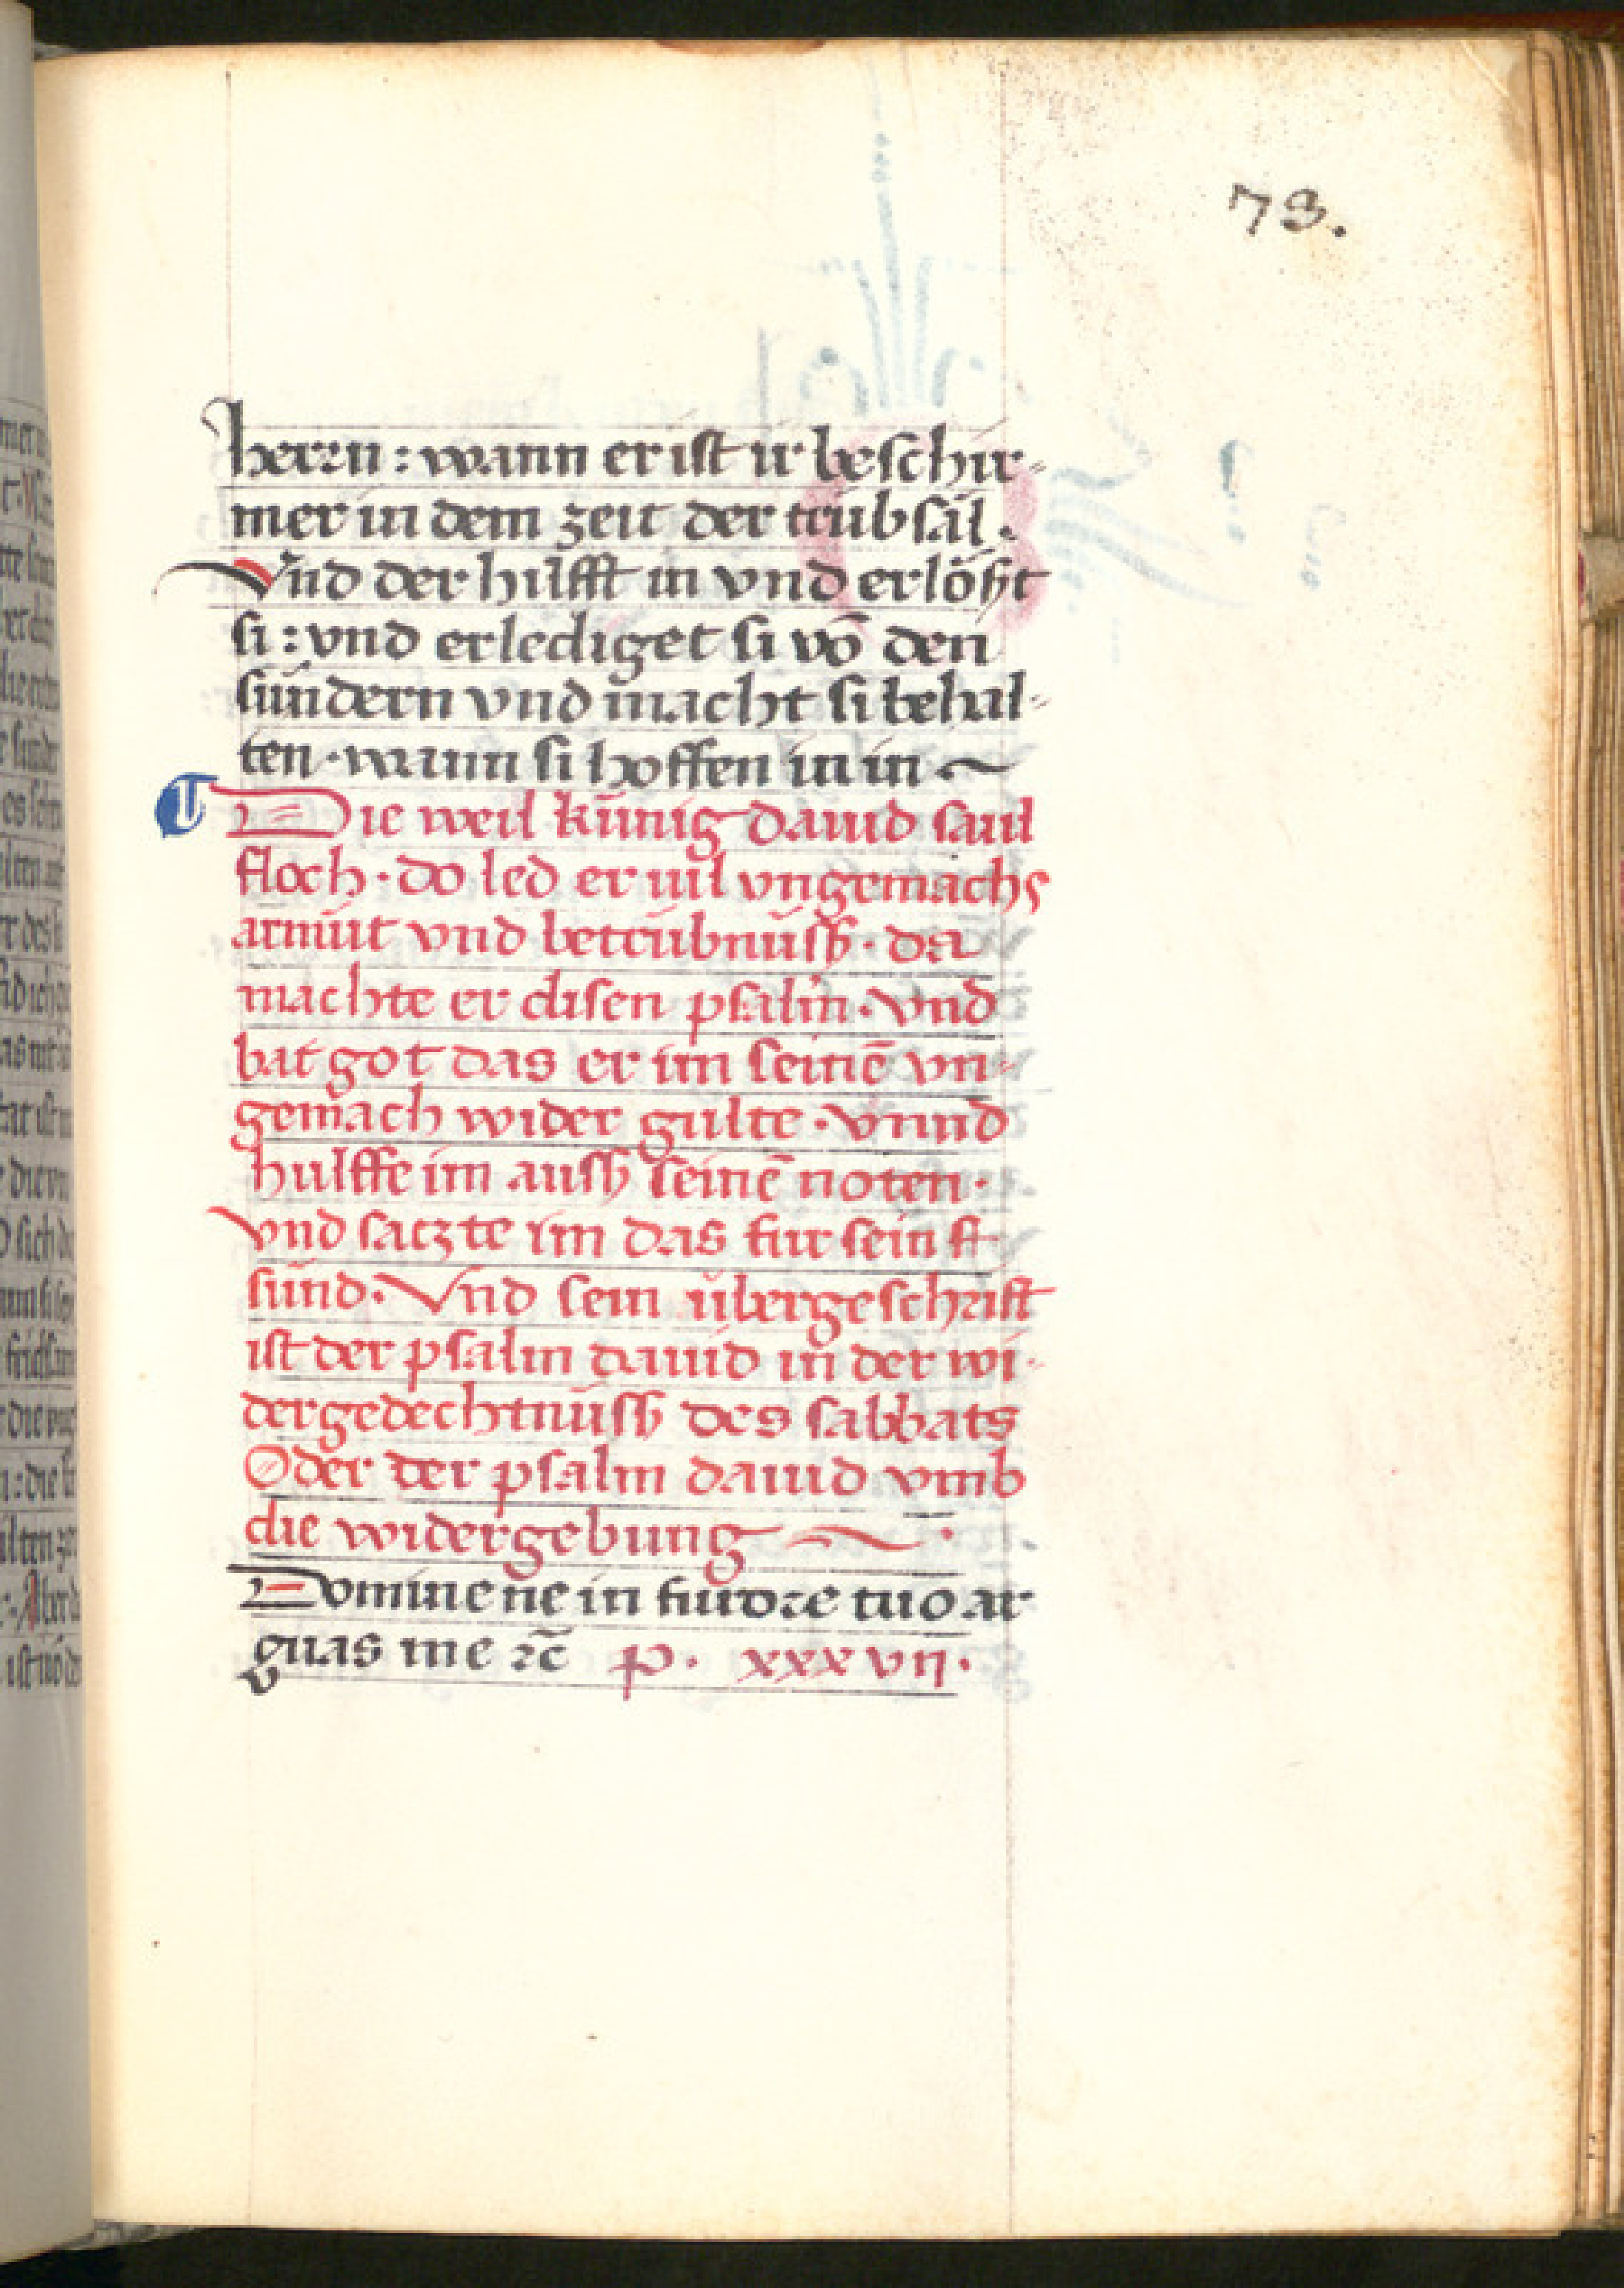 73.
herrn : wann er ist ir beschir-
mer in dem zeit der trübsäl.
Vnd der hilfft in vnd erlößt
si : vnd erlediget si vō den
sündern vnd macht si behal-
ten · wann si hoffen in in ~
Die weil künig dauid saul
floch · do led er uil vngemachs
armüt vnd betrübnüss · da
machte er disen psalm · vnd
bat got das er im seinē vn-
gemach wider gulte · vnnd
hulffe im auss seinē noten ·
vnd saczte im das fur sein
sünd · Vnd sein übergeschrift
ist der psalm dauid in der wi-
dergedechtnüss des sabbats
Oder der psalm dauid vmb
die widergebung ~ ·
Domine ne in furore tuo ar
guas me ꝛc̄ p · xxxvij ·